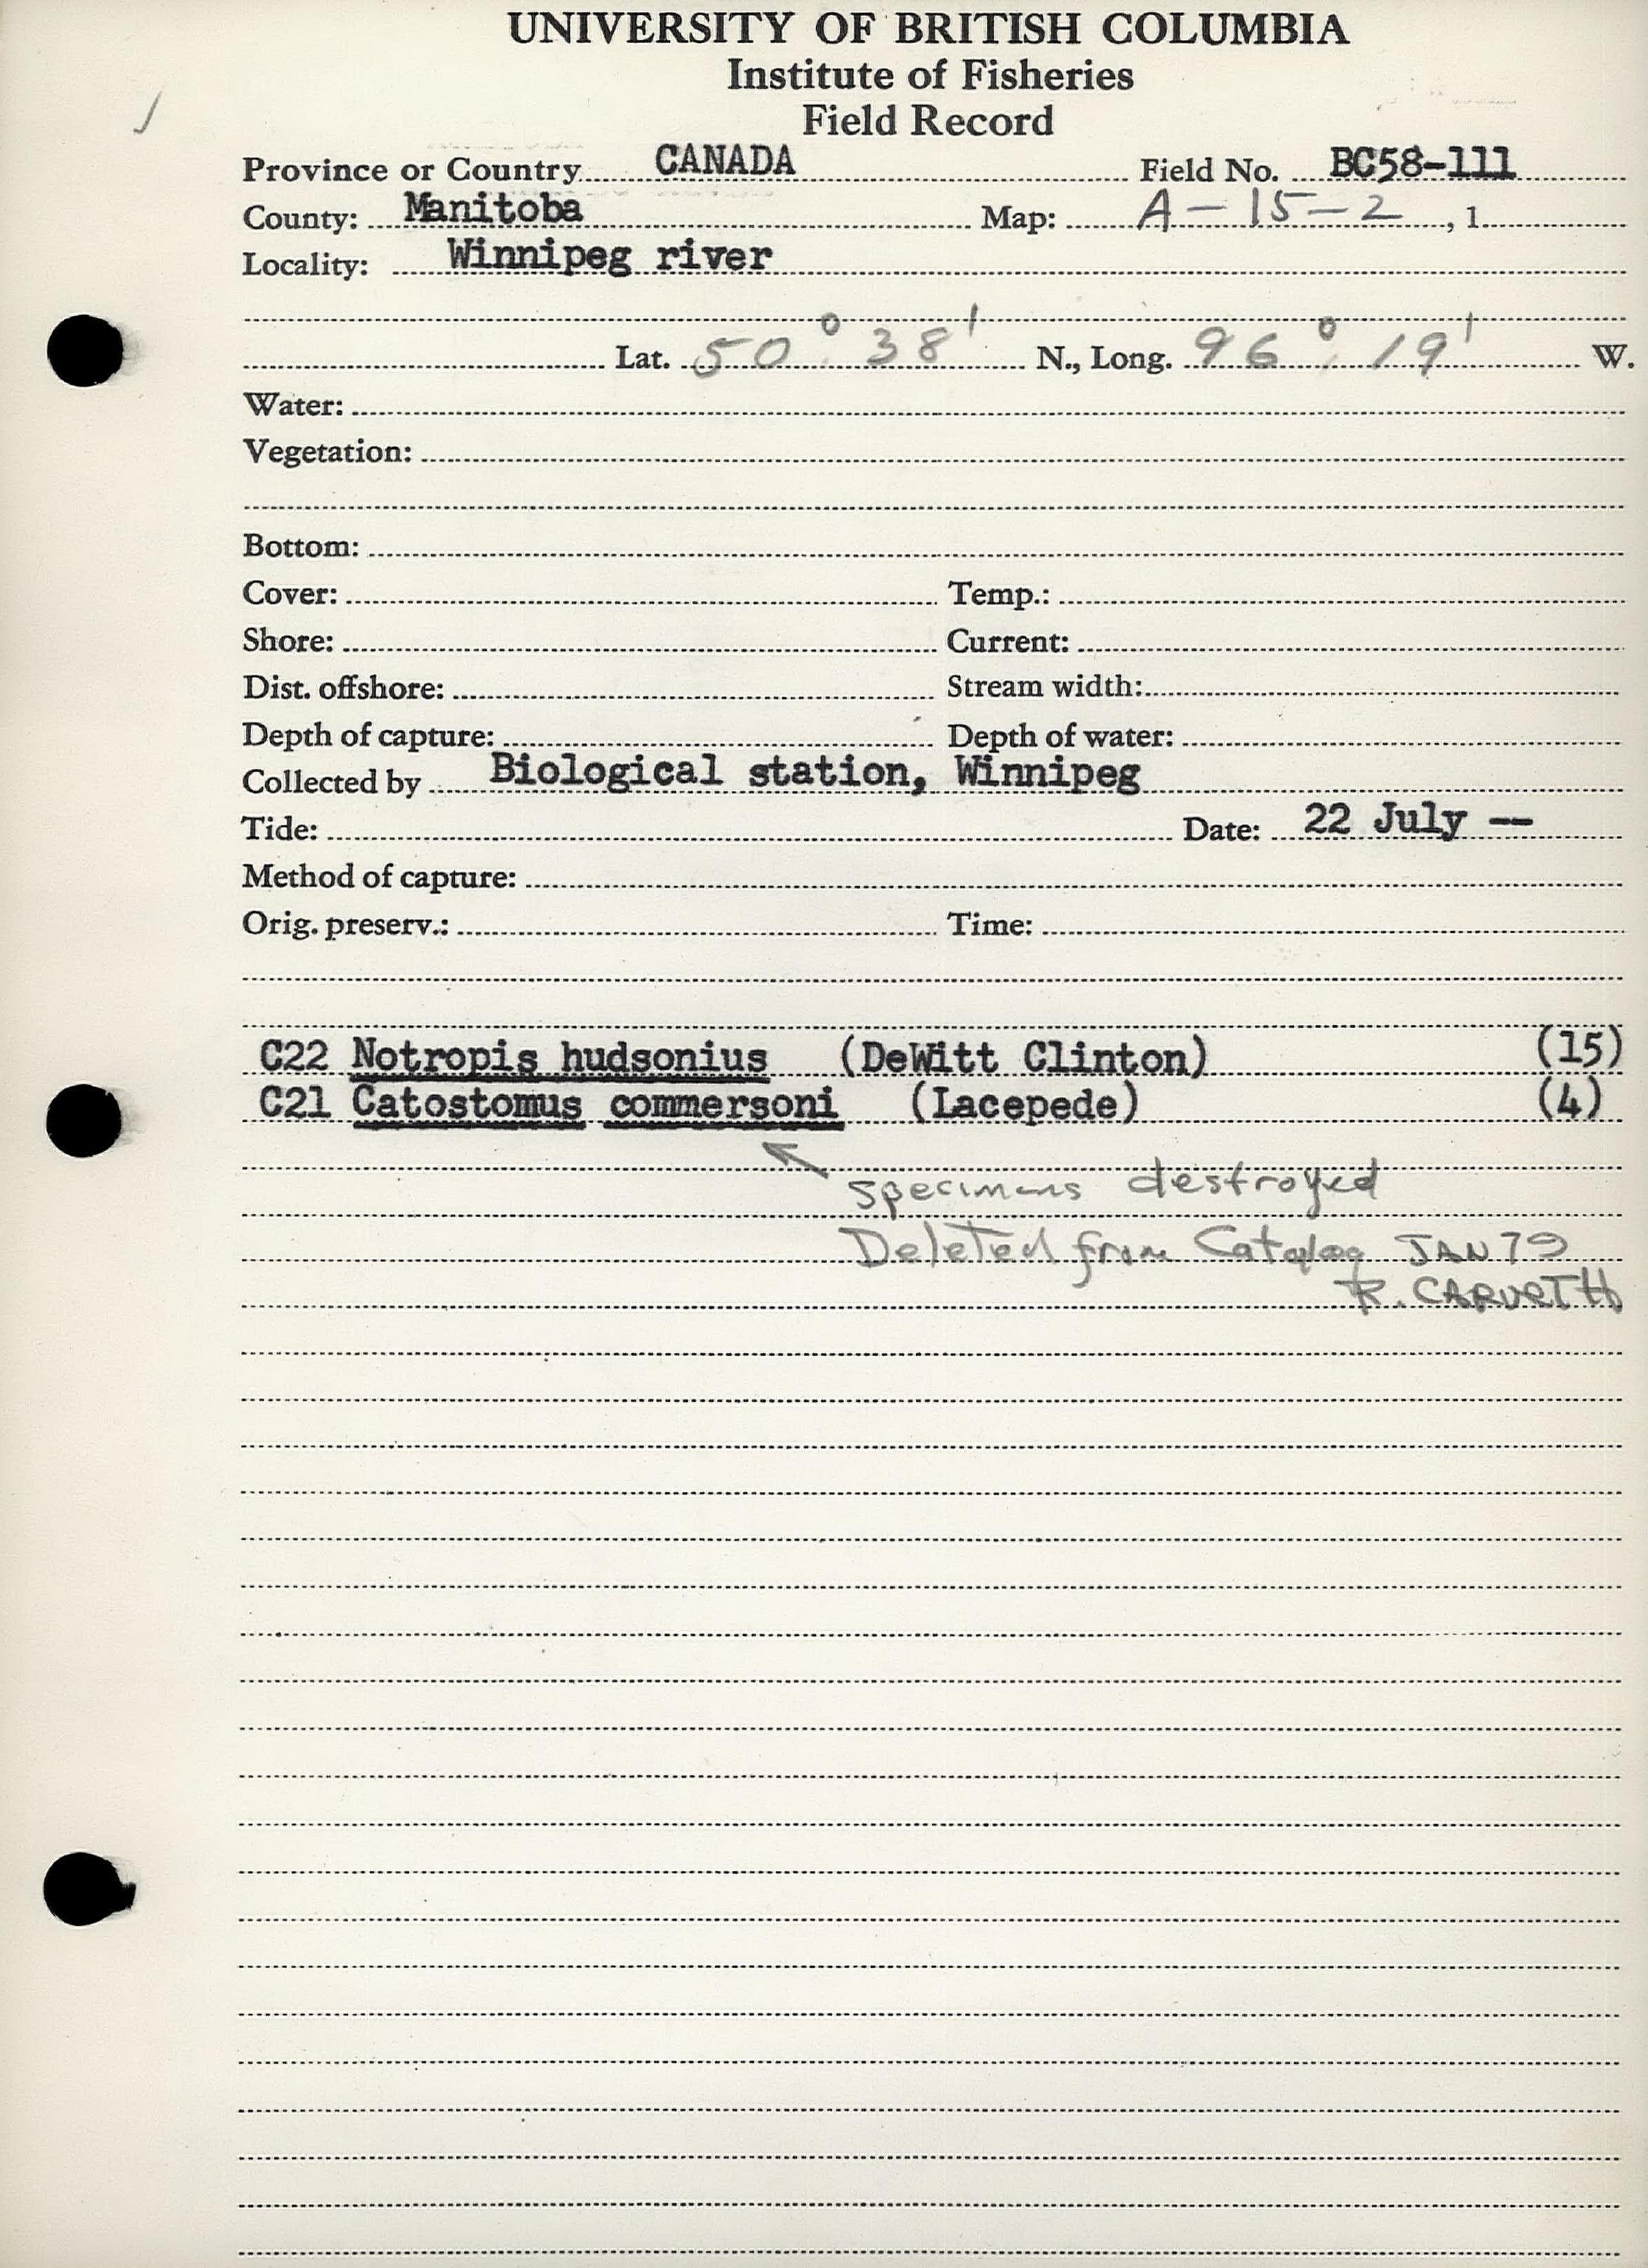 UNIVERSITY OF BRITISH COLUMBIA
Institute of Fisheries
Field Record
Province or Country CANADA Field No. BC58-111
County: Manitoba Map: A-15-2, 1
Locality: Winnipeg river
Lat. 50° 38' N., Long. 96° 19' W.
Water:
Vegetation:
Bottom:
Cover: Temp.:
Shore: Current:
Dist. offshore: Stream width:
Depth of capture: Depth of water:
Collected by Biological station, Winnipeg
Tide: Date: 22 July --
Method of capture:
Orig. preserv.: Time:
C22 Notropis hudsonius (DeWitt Clinton) (15)
C21 Catostomus commersoni (Lacepede) (4)
specimens destroyed
Deleted from Catalog JAN 79
R. CARVETH